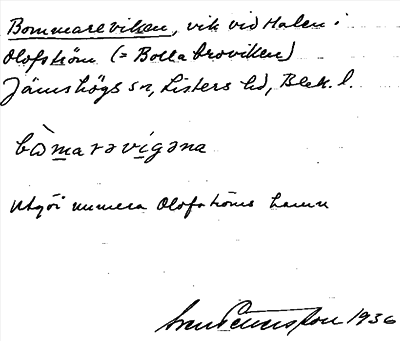 Bommareviken, vik vid Halen i
Olofström (= Bollabroviken)
Jämshögs sn, Listers hd, Blek. l.
bòmarəvigəna
utgör numera Olofströms hamn
Sven Benson 1936